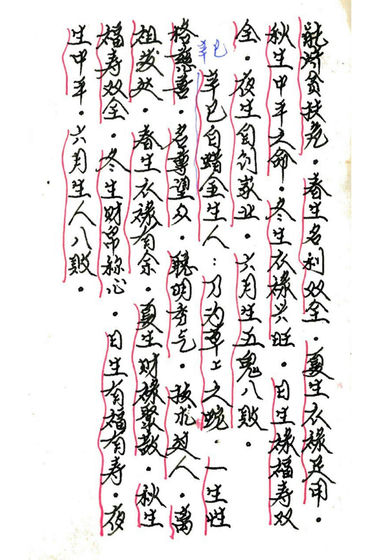 贫扶。春生名利双全。夏生衣禄足用。
秋生中平之命。冬生衣禄兴旺。日生禄福寿双
全。夜生自创家业。六月生五鬼八败。
辛巳
辛巳白蜡金生人：乃为草上之蛇。一生性
格慈善。名望众。聪明秀气。技术过人。离
祖发达。春生衣禄有余。夏生财禄聚散。秋生
福寿双全。冬生财帛称心。日生有福有寿。夜
生中平。六月生人八败。